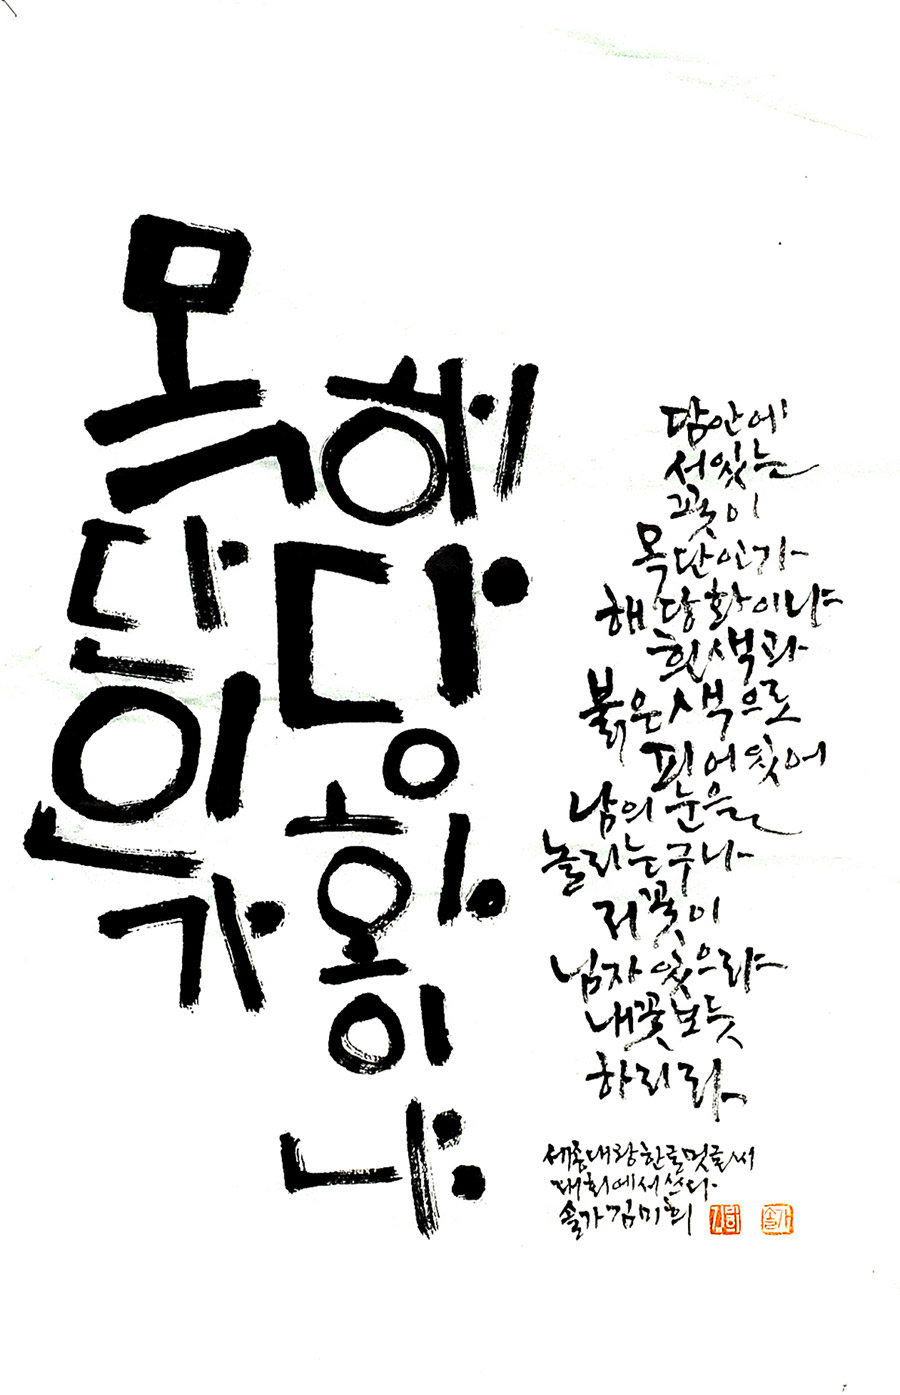 목단인가
해당화이냐
담안에
서있는
꽃이
목단인가
해당화이냐
흰색과
붉은색으로
피어있어
남의눈을
놀리는구나
저꽃이
님자있으랴
내꽃보듯
하리라
세종대왕한글멋글씨
대회에서쓰다
솔가김미희
솔가